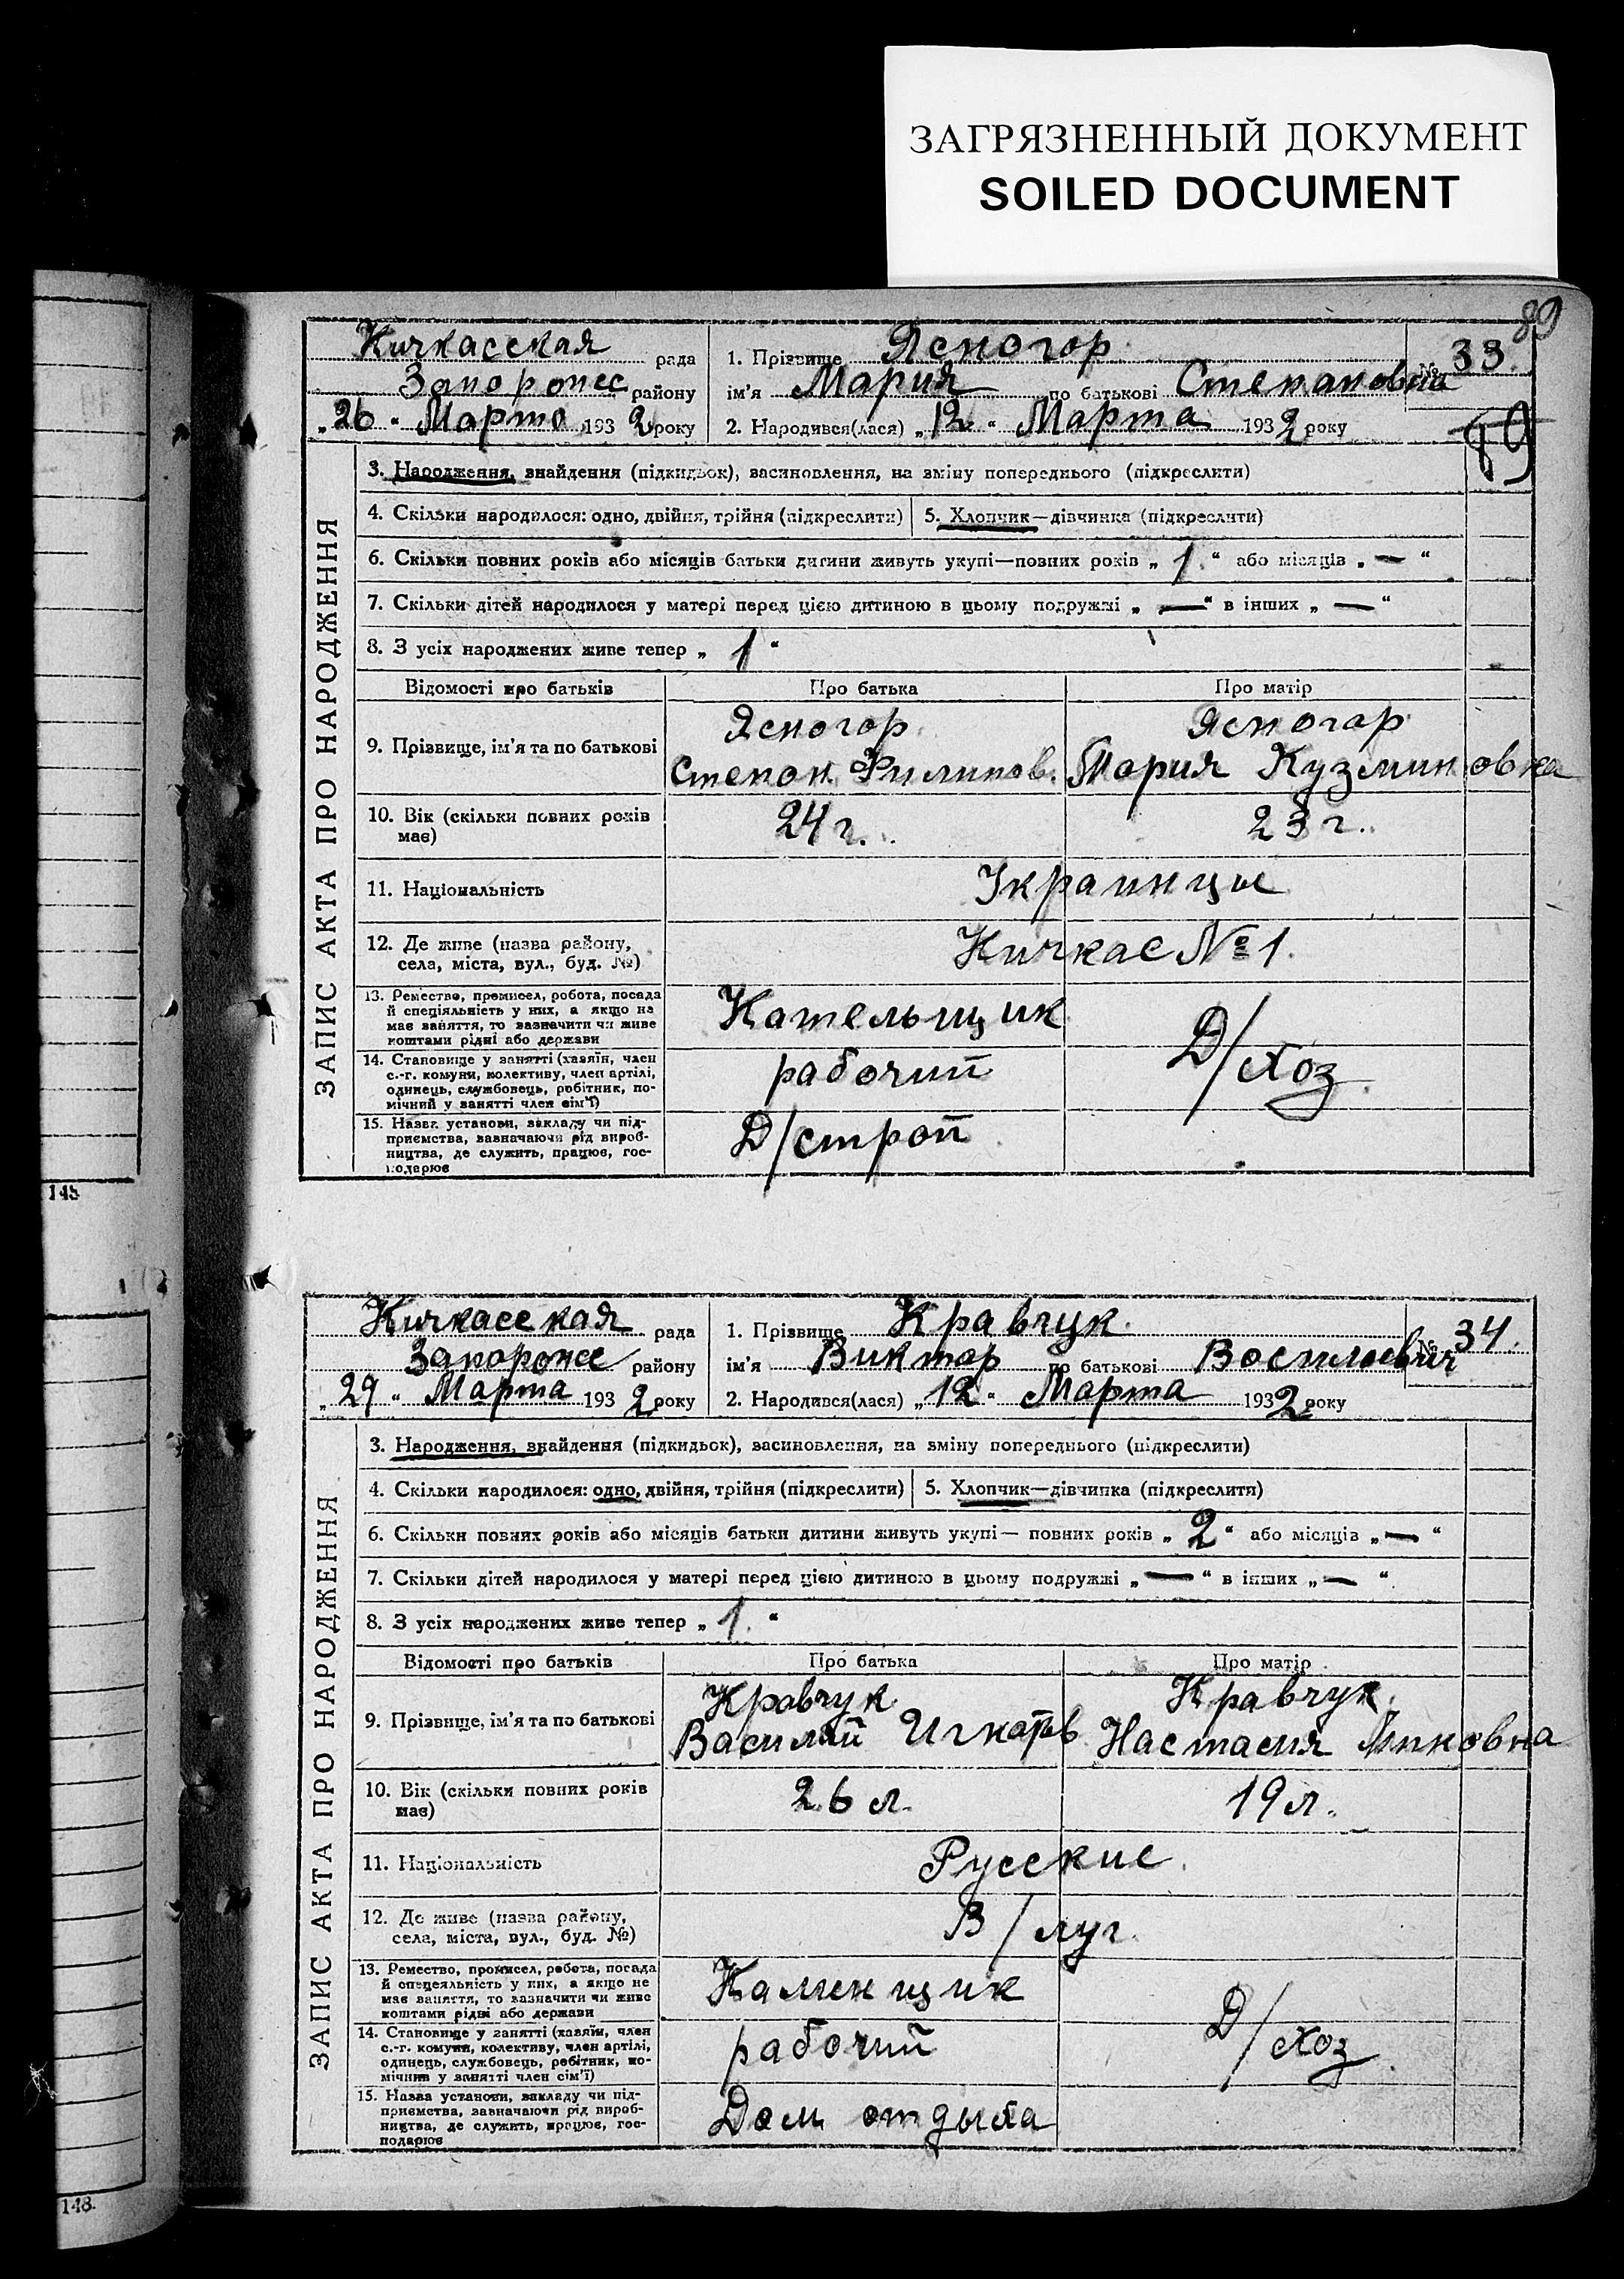 ЗАГРЯЗНЕННЫЙ ДОКУМЕНТ
SOILED DOCUMENT
89
Кичкасская рада
Запорожс району
„26“ Марта 1932 року
1. Прізвище Ясногор
ім'я Мария по батькові Степановна
2. Народився(лася) „12“ Марта 1932 року
№ 33.
ЗАПИС АКТА ПРО НАРОДЖЕННЯ
3. Народження, знайдення (підкидьок), засиновлення, на зміну попереднього (підкреслити)
4. Скільки народилося: одно, двійня, трійня (підкреслити)
5. Хлопчик—дівчинка (підкреслити)
6. Скільки повних років або місяців батьки дитини живуть укупі—повних років „1.“ або місяців „—“
7. Скільки дітей народилося у матері перед цією дитиною в цьому подружжі „—“ в інших „—“
8. З усіх народжених живе тепер „1“
Відомості про батьків Про батька Про матір
9. Прізвище, ім'я та по батькові
Ясногор
Степан Филипов.
Ясногор
Мария Кузминовна
10. Вік (скільки повних років
має)
24 г.
23 г.
11. Національність
Украинцы
12. Де живе (назва району,
села, міста, вул., буд. №)
Кичкас №1.
13. Ремество, промисел, робота, посада
й спеціяльність у них, а якщо не
має заняття, то зазначити чи живе
коштами рідні або держави
Кательщик
14. Становище у занятті (хазяїн, член
с.-г. комуни, колективу, член артілі,
одинець, службовець, робітник, по-
мічний у занятті член сім'ї)
рабочий
Д/хоз
15. Назва установи, закладу чи під-
приємства, зазначаючи рід вироб-
ництва, де служить, працює, гос-
подарює
Д/строй
145
Кичкасская рада
Запорожсе району
„29“ Марта 1932 року
1. Прізвище Кравчук.
ім'я Виктор по батькові Васильевич
2. Народився(лася) „12“ Марта 1932 року
№ 34.
ЗАПИС АКТА ПРО НАРОДЖЕННЯ
3. Народження, знайдення (підкидьок), засиновлення, на зміну попереднього (підкреслити)
4. Скільки народилося: одно, двійня, трійня (підкреслити)
5. Хлопчик—дівчинка (підкреслити)
6. Скільки повних років або місяців батьки дитини живуть укупі— повних років „2“ або місяців „—“
7. Скільки дітей народилося у матері перед цією дитиною в цьому подружжі „—“ в інших „—“
8. З усіх народжених живе тепер „1.“
Відомості про батьків Про батька Про матір
9. Прізвище, ім'я та по батькові
Кравчук
Василий Игнатов
Кравчук.
Настасия
10. Вік (скільки повних років
має)
26 л.
19 л.
11. Національність
Русские.
12. Де живе (назва району,
села, міста, вул., буд. №)
В/луг.
13. Ремество, промисел, робота, посада
й спецеяльність у них, а якщо не
має заняття, то зазначити чи живе
коштами рідні або держави
Каменщик
14. Становище у занятті (хазяїн, член
с.-г. комуни, колективу, член артілі,
одинець, службовець, робітник, по-
мічний у занятті член сім'ї)
рабочий
Д/хоз
15. Назва установи, закладу чи під-
приємства, зазначаючи рід вироб-
ництва, де служить, працює, гос-
подарює
Дом отдыха
148